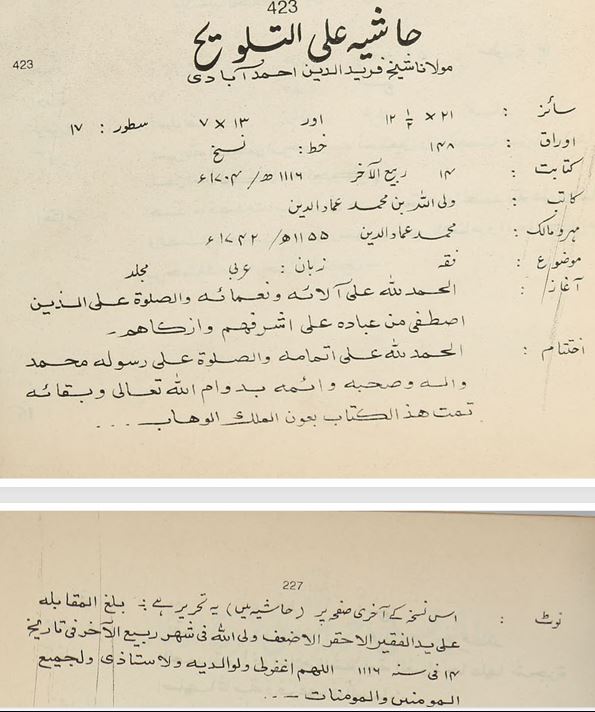 423
حاشیہ علی التلویح
423
مولانا شیخ فرید الدین احمد آبادی
سائز : ۲۱ × ۱۲ ½ اور ۱۳ × ۷ سطور : ۱۷
اوراق : ۱۴۸ خط : نسخ
کتابت : ۱۴ ربیع الآخر ۱۱۱۶ھ/ ۱۷۰۴ء
کاتب : ولی اللہ بن محمد عماد الدین
مہر و مالک : محمد عماد الدین ۱۱۵۵ھ/ ۱۷۴۲ء
موضوع : فقہ زبان : عربی مجلد
آغاز : الحمد للہ علی آلائہ ونعمائہ والصلوة علی الذین
اصطفی من عبادہ علی اشرفهم وازکاهم۔
اختتام : الحمد للہ علی اتمامہ والصلوة علی رسولہ محمد
والہ وصحبہ وائمہ بدوام اللہ تعالی وبقائہ
تمت هذ الکتاب بعون الملک الوهاب ...
227
نوٹ : اس نسخہ کے آخری صفحہ پر (حاشیہ میں) یہ تحریر ہے :۔ بلغ المقابلہ
علی ید الفقیر الاحقر الاضعف ولی اللہ فی شهر ربیع الآخر فی تاریخ
۱۴ فی سنہ ۱۱۱۶ اللهم اغفرلی ولوالدیہ ولاستاذی ولجمیع
المومنین والمومنات ۔۔۔